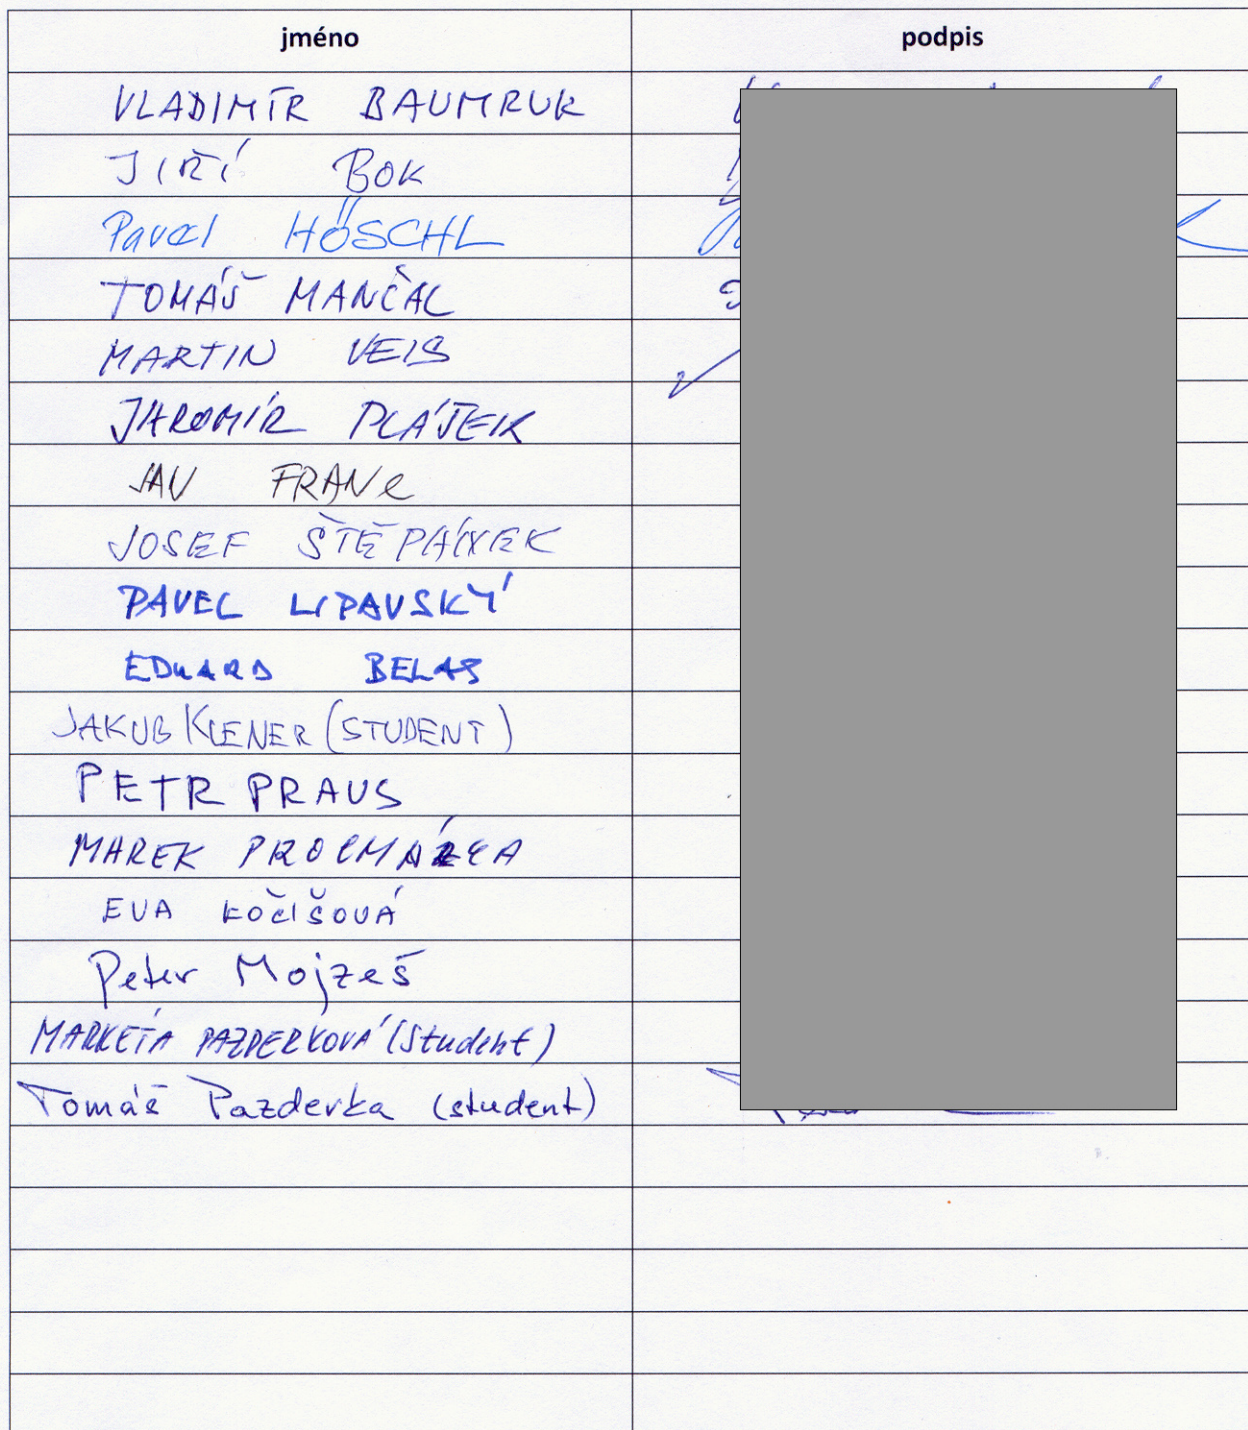 jméno podpis
VLADIMÍR BAUMRUK
JIŘÍ BOK
Pavel HÖSCHL
TOMÁŠ MANČAL
MARTIN VEIS
JAROMÍR PLÁŠEK
JAN FRANC
JOSEF ŠTĚPÁNEK
PAVEL LIPAVSKÝ
EDUARD BELAS
JAKUB KLENER (STUDENT)
PETR PRAUS
MAREK PROCHÁZKA
EVA KOČIŠOVÁ
Peter Mojzeš
MARKÉTA PAZDERKOVÁ (student)
Tomáš Pazderka (student)